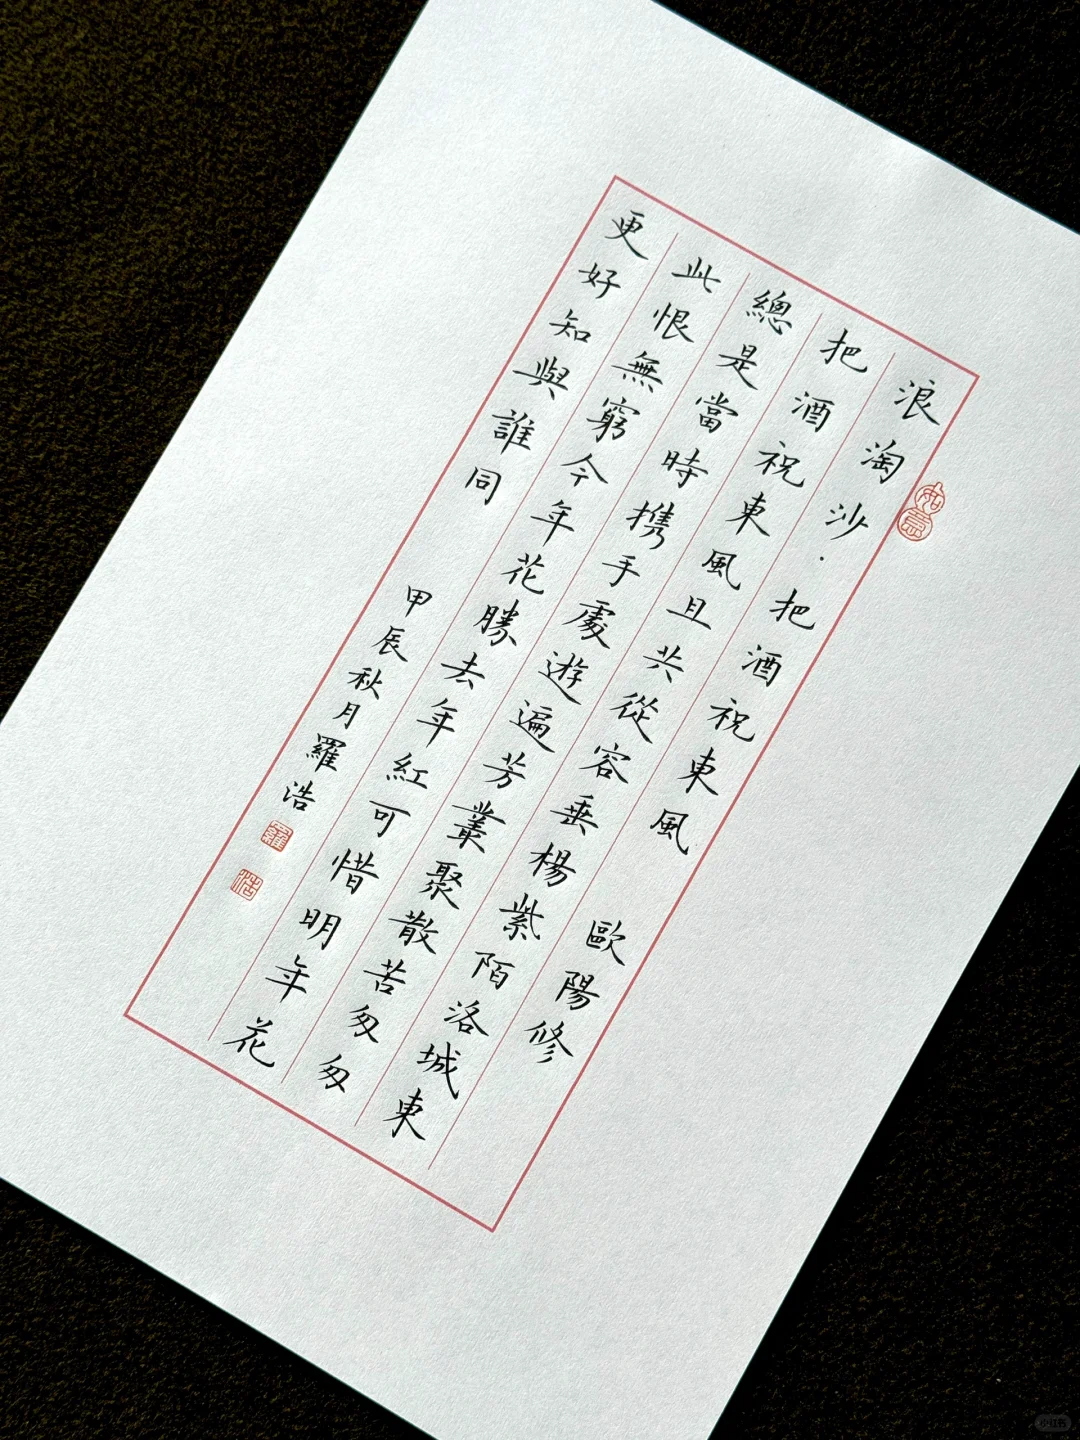 浪淘沙·把酒祝東風 歐陽修
如意
把酒祝東風且共從容垂楊紫陌洛城東
總是當時携手處遊遍芳叢聚散苦匆匆
此恨無窮今年花勝去年紅可惜明年花
更好知與誰同
甲辰秋月羅浩
羅
浩
小红书